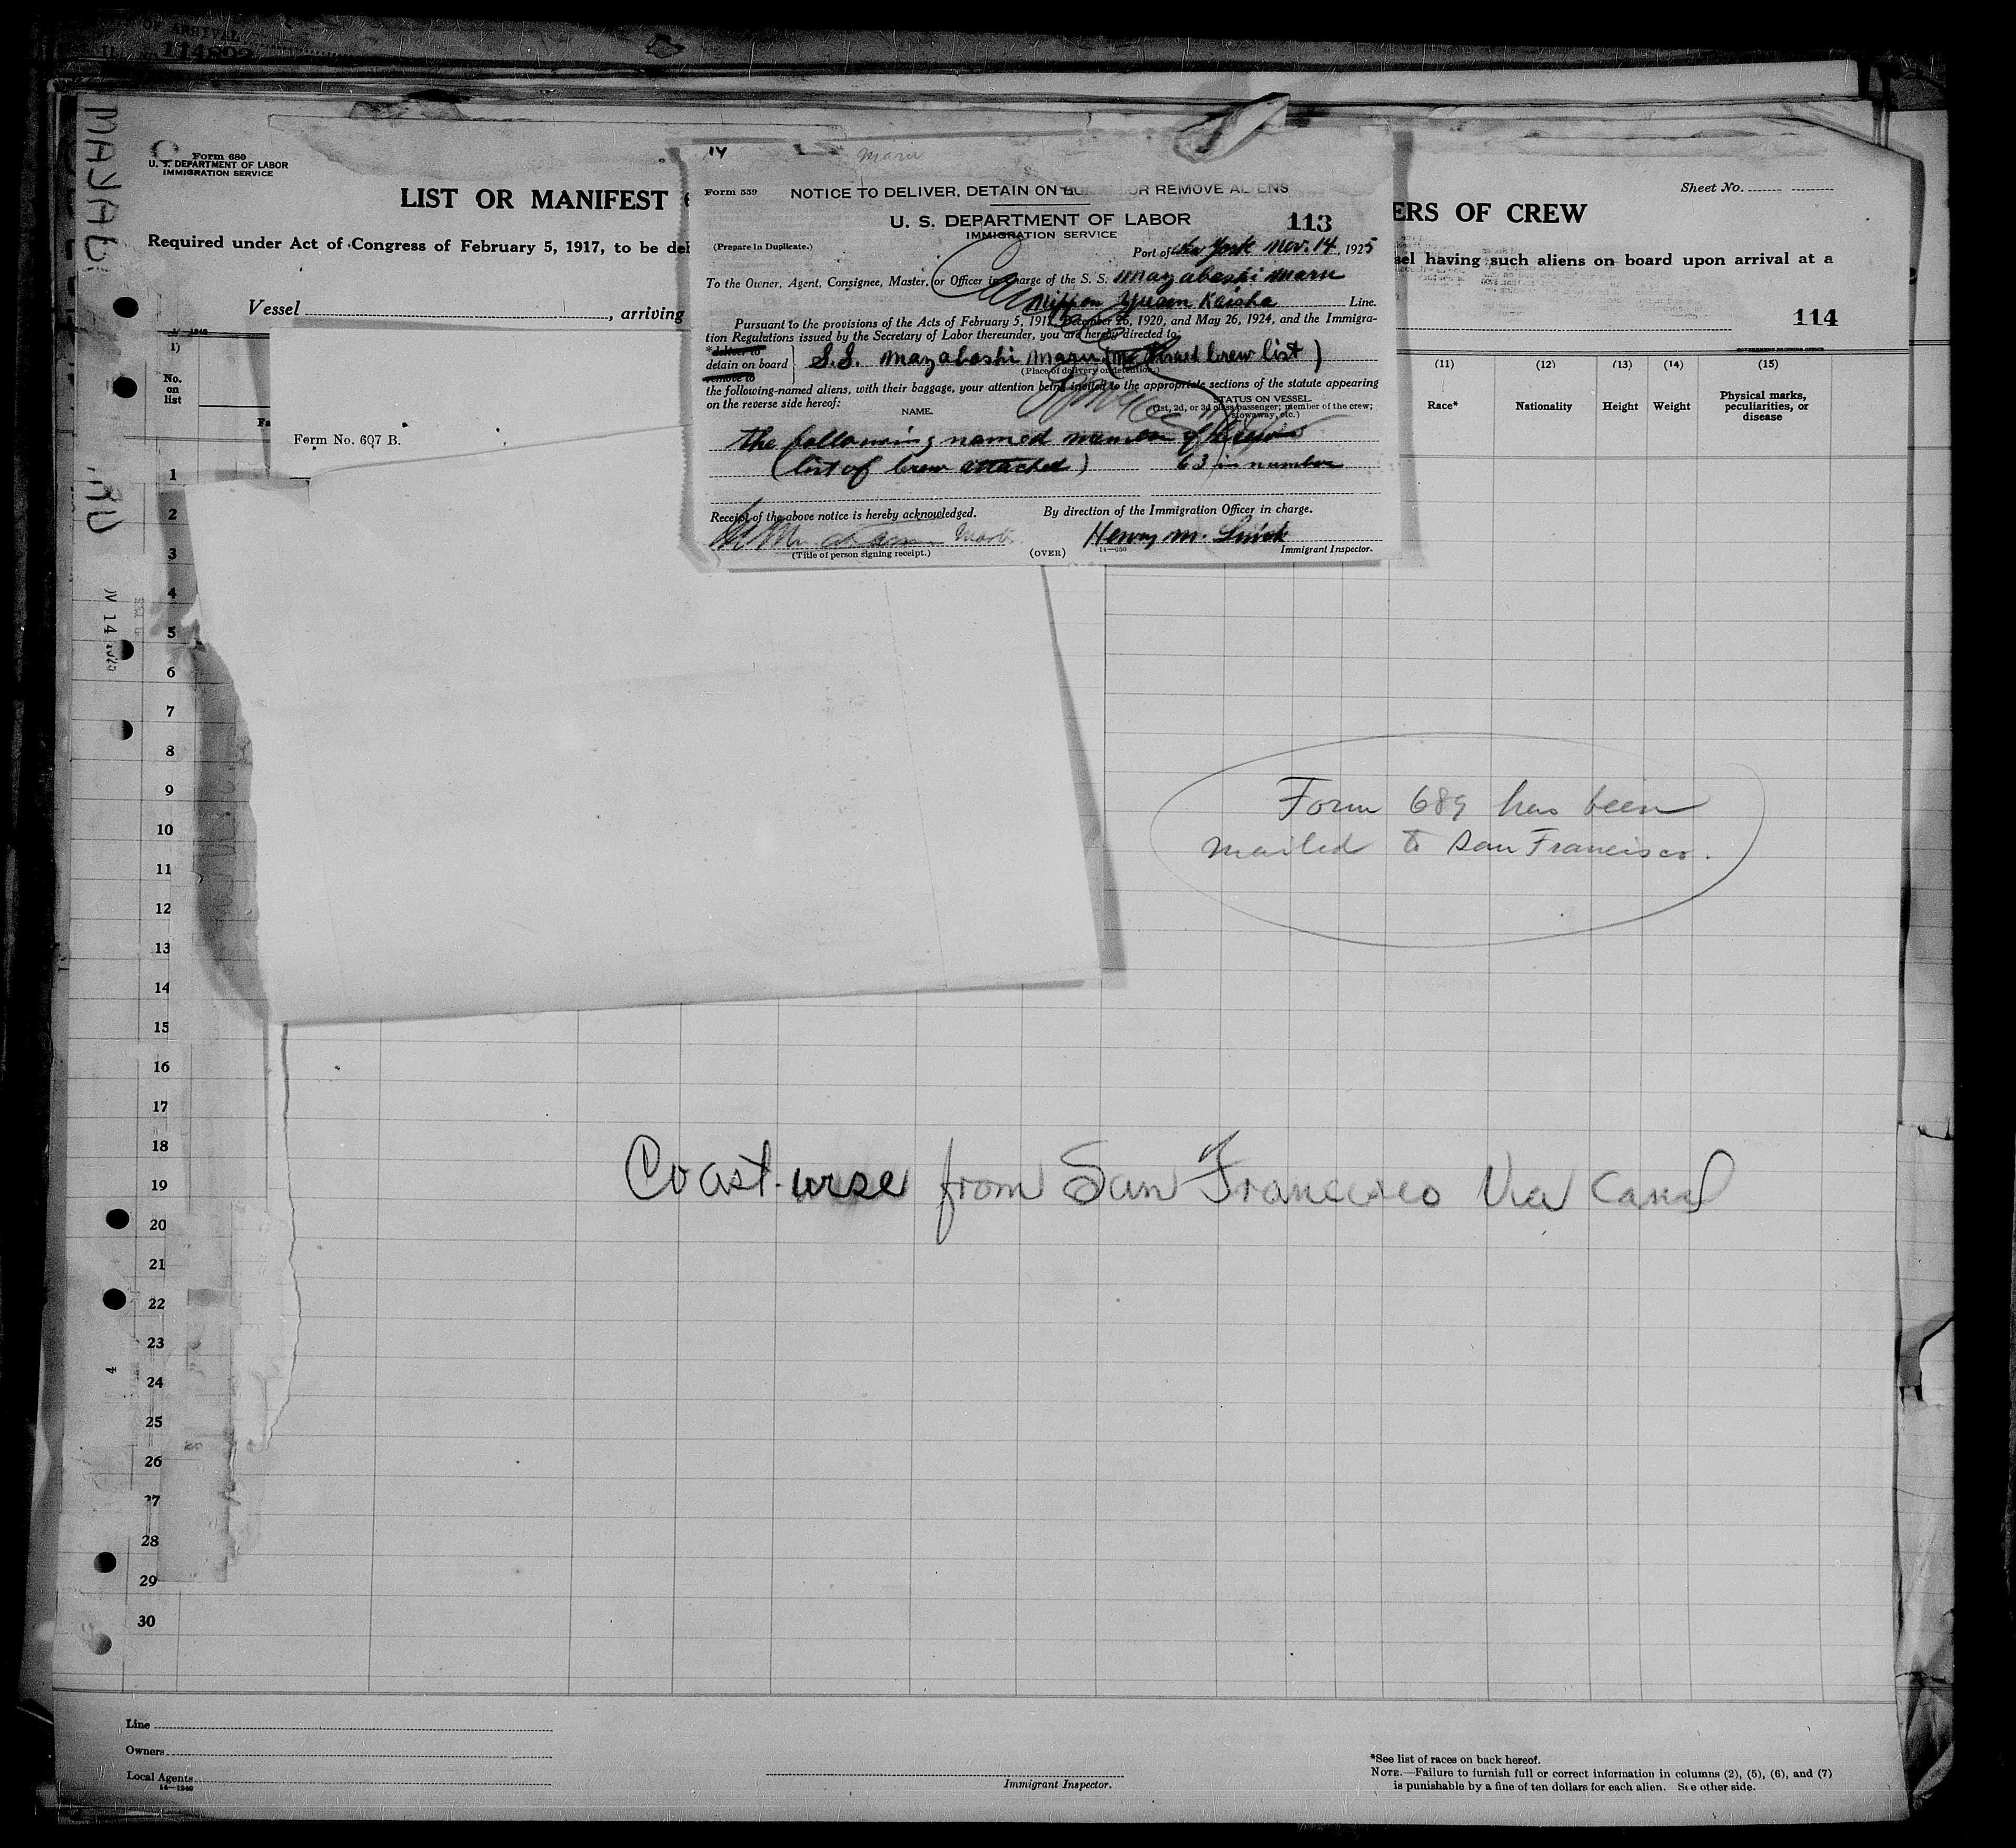 OF ARRIVAL
114892
MAYAB
RU
Form 680
U. S. DEPARTMENT OF LABOR
IMMIGRATION SERVICE
LIST OR MANIFEST
ERS OF CREW
Sheet No.
Required under Act of Congress of February 5, 1917, to be del
sel having such aliens on board upon arrival at a
Vessel , arriving
114
14
maru
Form 559
NOTICE TO DELIVER, DETAIN ON BO OR REMOVE ALIENS
U. S. DEPARTMENT OF LABOR
113
IMMIGRATION SERVICE
(Prepare in Duplicate.)
Port of New York Nov. 14, 1925
To the Owner, Agent, Consignee, Master, or Officer in Charge of the S. S. Mayabashi Maru
Nippon Yusen Kaisha Line.
Pursuant to the provisions of the Acts of February 5, 1917, December 26, 1920, and May 26, 1924, and the Immigra-
tion Regulations issued by the Secretary of Labor thereunder, you are hereby directed to:
*deliver to
detain on board
remove to
S.S. Mayabashi Maru crew list)
(Place of delivery or detention.)
the following-named aliens, with their baggage, your attention being invited to the appropriate sections of the statute appearing
on the reverse side hereof:
NAME.
STATUS ON VESSEL.
(1st, 2d, or 3d class passenger; member of the crew;
stowaway, etc.)
The following named member of Crew
(list of Crew attached) 63 in number
Receipt of the above notice is hereby acknowledged.
By direction of the Immigration Officer in charge.
Henry M.
(Title of person signing receipt.)
(OVER)
14—650
Immigrant Inspector.
1)
No.
on
list
Fa
Form No. 607 B.
(11)
(12)
(13)
(14)
(15)
Race*
Nationality
Height
Weight
Physical marks,
peculiarities, or
disease
1
2
3
4
5
6
7
8
9
10
11
12
13
14
15
16
17
18
19
20
21
22
23
24
25
26
27
28
29
30
Form 689 has been
mailed to San Francisco.
Coast wise from San Francisco Via Canal
4
Line
Owners
Local Agents
14—1240
Immigrant Inspector.
*See list of races on back hereof.
NOTE.—Failure to furnish full or correct information in columns (2), (5), (6), and (7)
is punishable by a fine of ten dollars for each alien. See other side.